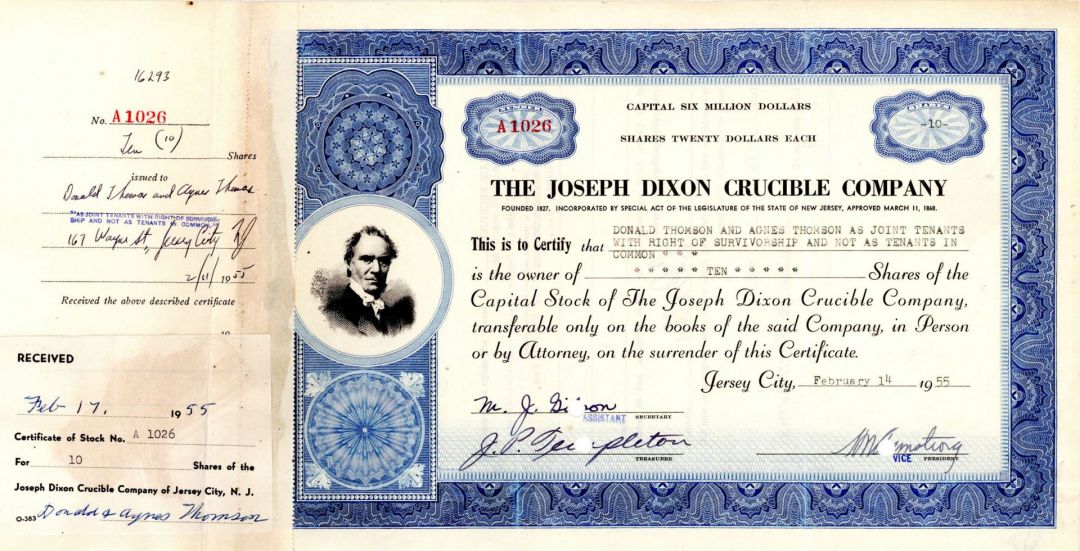 16293
No. A1026
Ten (10)
Shares
issued to
Donald Thomas and Agnes Thomas
"AS JOINT TENANTS WITH RIGHT OF SURVIVOR-
SHIP AND NOT AS TENANTS IN COMMON"
167 Wayne St, Jersey City NJ
2/11/1955
Received the above described certificate
19
RECEIVED
Feb 17, 1955
Certificate of Stock No. A 1026
For 10 Shares of the
Joseph Dixon Crucible Company of Jersey City, N. J.
O-383 Donald & Agnes Thomson
A1026
CAPITAL SIX MILLION DOLLARS
SHARES TWENTY DOLLARS EACH
-10-
THE JOSEPH DIXON CRUCIBLE COMPANY
FOUNDED 1827. INCORPORATED BY SPECIAL ACT OF THE LEGISLATURE OF THE STATE OF NEW JERSEY, APPROVED MARCH 11, 1868.
This is to Certify that DONALD THOMSON AND AGNES THOMSON AS JOINT TENANTS
WITH RIGHT OF SURVIVORSHIP AND NOT AS TENANTS IN
COMMON * * *
is the owner of * * * * * TEN * * * * * Shares of the
Capital Stock of The Joseph Dixon Crucible Company,
transferable only on the books of the said Company, in Person
or by Attorney, on the surrender of this Certificate.
Jersey City, February 14 1955
M. J.
ASSISTANT SECRETARY
J. P. Templeton
TREASURER
VICE PRESIDENT